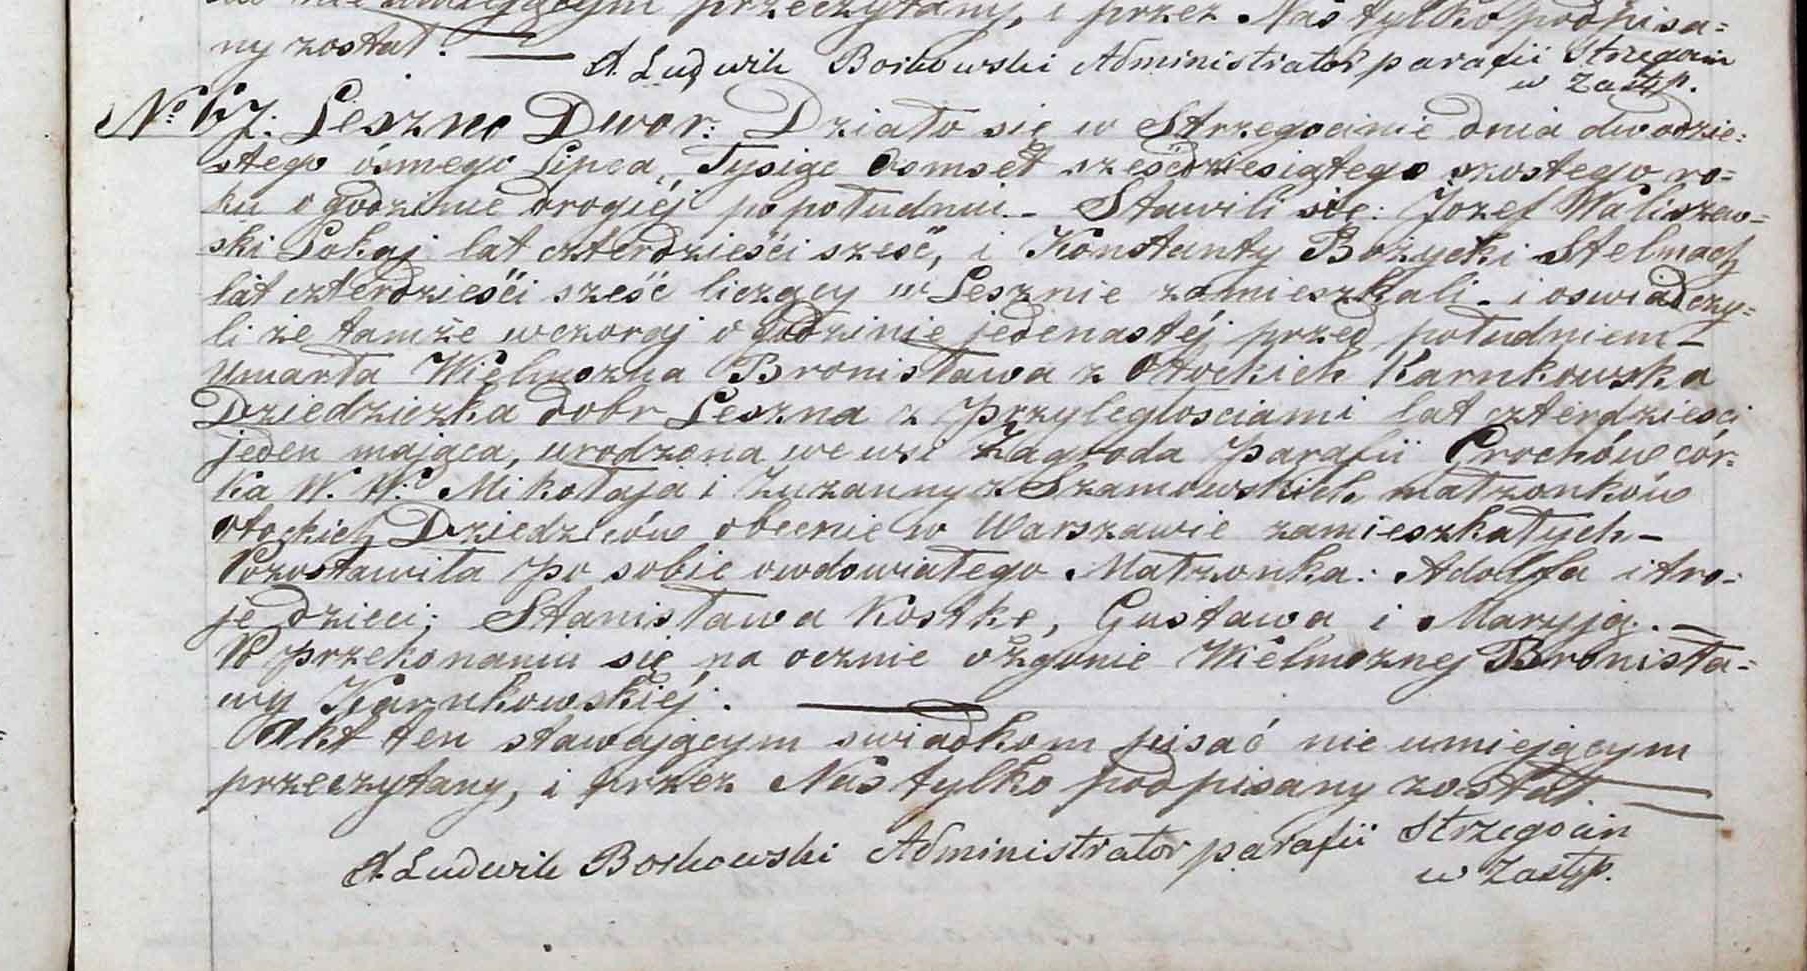 nie umiejącym przeczytany, i przez Nas tylko podpisa=
ny został.
X. Ludwik Borkowski Administrator parafii Strzegocin
w Zastp.
No 67. Leszno Dwor: Działo się w Strzegocinie dnia dwodzie=
stego ósmego Lipca, Tysiąc Osmset sześćdziesiątego szostego ro=
ku o godzinie drogiéj popołudniu. Stawili się: Józef Waliszew=
ski Lokaj lat czterdzieści sześć, i Konstanty Bożycki Stelmach
lat czterdzieści sześć liczący w Lesznie zamieszkali - i oswiadczy=
li że tamże wczoraj o godzinie jedenastéj przed południem -
umarła Wielmozna Bronisława z Otockich Karnkowska
Dziedziczka dobr Leszna z przyległosciami lat czterdziesci
jeden mająca, urodzona we wsi Zagroda Parafii Crochów cór=
ka W. W. Mikołaja i Zuzanny z Szamowskich małzonków
Otockich Dziedziców obecnie w Warszawie zamieszkałych -
Pozostawiła po sobie owdowiałego Małzonka: Adolfa i tro=
je dzieci; Stanisława Kostkę, Gustawa i Maryją. -
Po przekonaniu się na ocznie o zgonie Wielmoznej Bronisła=
wy Karnkowskiéj.
Akt ten stawającym swiadkom pisać nie umiejącym
przeczytany, i przez Nas tylko podpisany został.
X. Ludwik Borkowski Administrator parafii Strzegocin
w Zastp.